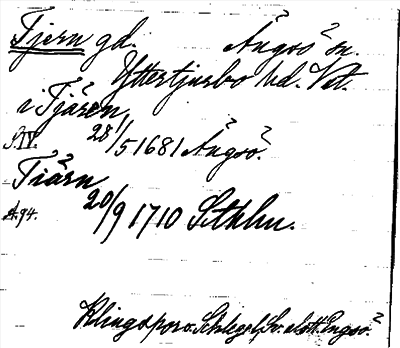 Tjern gd. Ängsö sn.
Yttertjurbo hd. Vst.
i Tjären,
S.IV. 28/5 1681 Ängsö.
Tiärn
d.94. 20/9 1710 Sthlm.
Klingspor o. Schlegel, Sv. slott. Engsö.